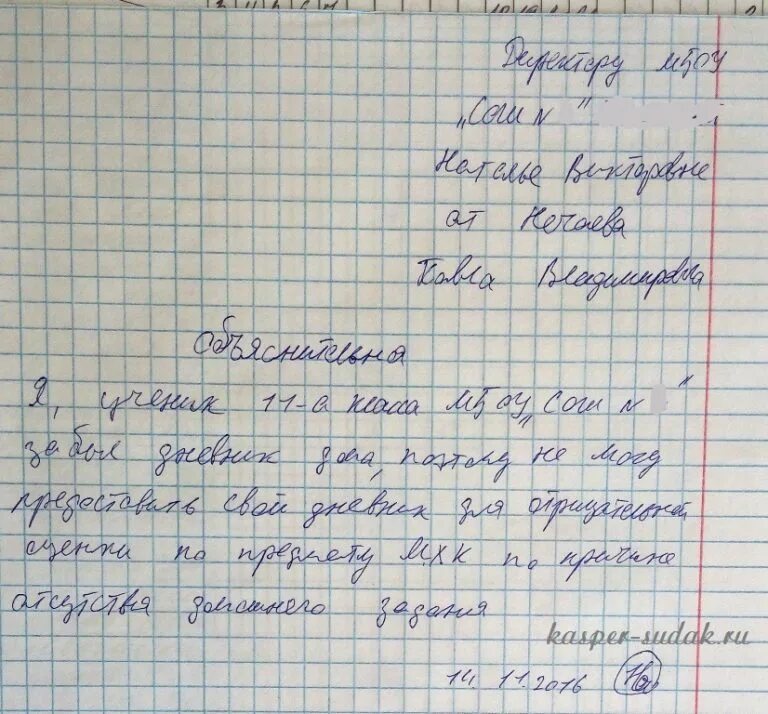 Директору МБОУ
„Сош №            "
Наталье Викторовне
от Нечаева
Павла Владимировича
Объяснительная
Я, ученик 11-а класса МБОУ „Сош №    "
забыл дневник дома, поэтому не могу
предоставить свой дневник для отрицательной
оценки по предмету МХК по причине
отсутствия домашнего задания
kasper-sudak.ru
14.11.2016